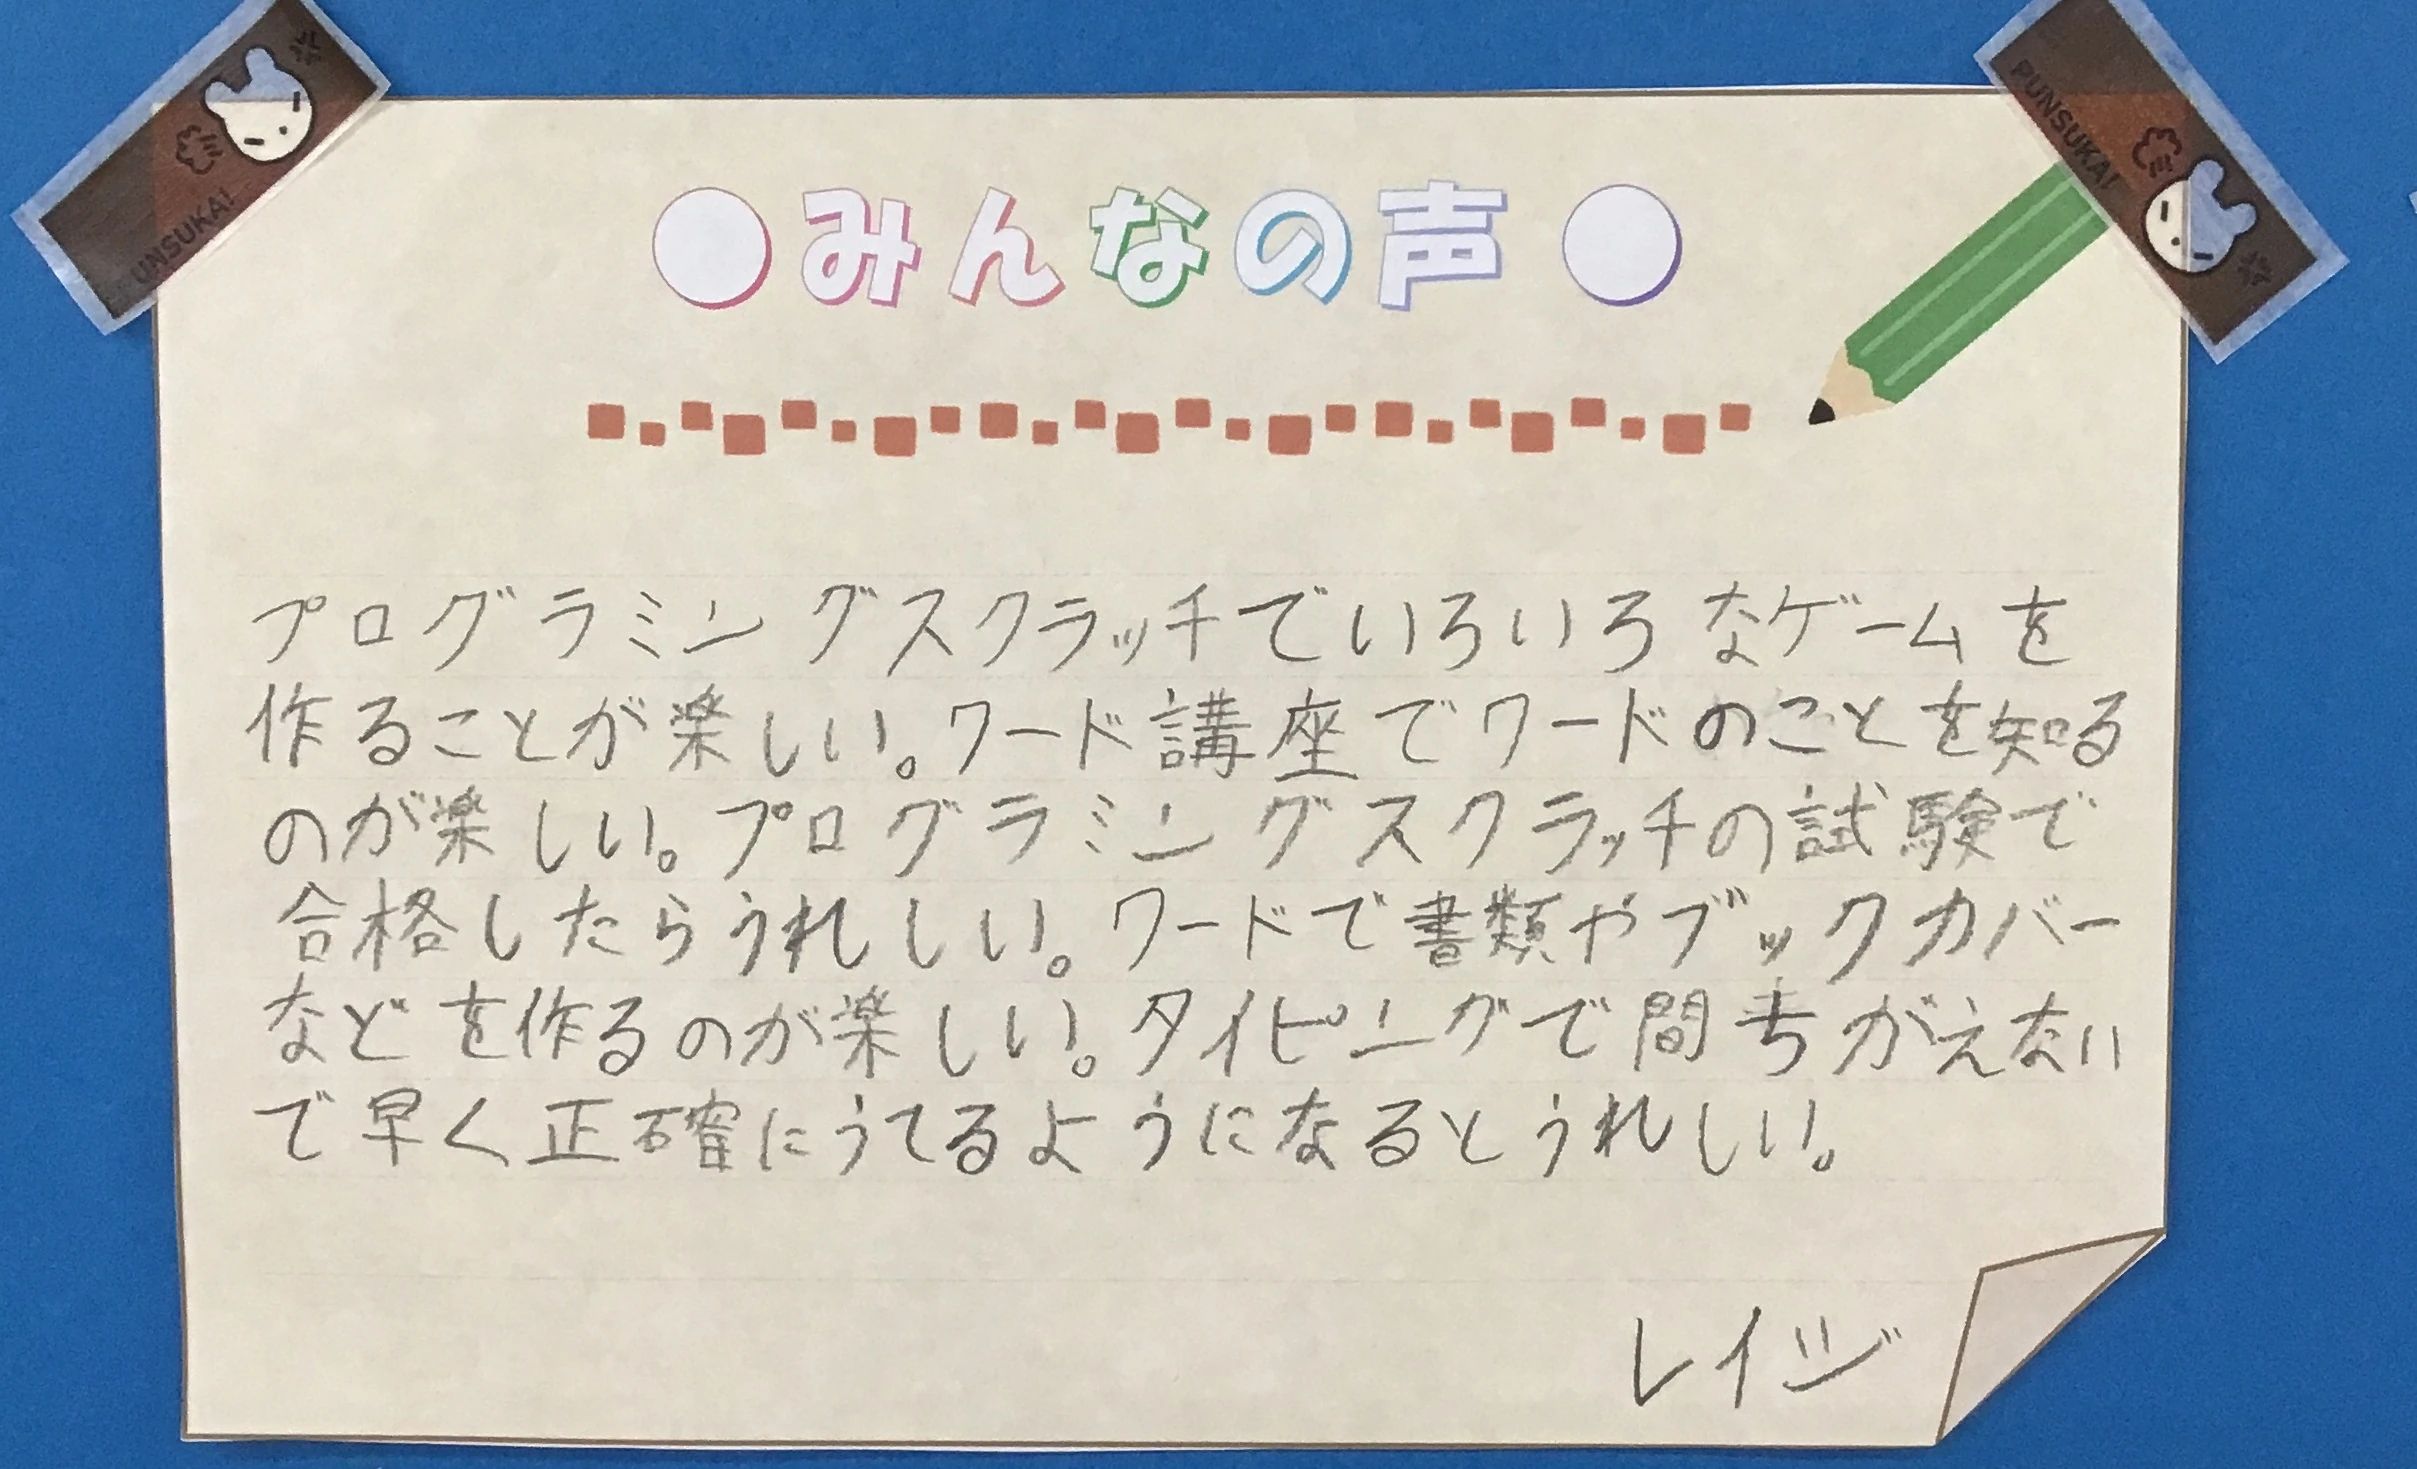 UNSUKA!
PUNSUKA!
●みんなの声●
プログラミングスクラッチでいろいろなゲームを
作ることが楽しい。ワード講座でワードのことを知る
のが楽しい。プログラミングスクラッチの試験で
合格したらうれしい。ワードで書類やブックカバー
などを作るのが楽しい。タイピングで間ちがえない
で早く正確にうてるようになるとうれしい。
レイジ